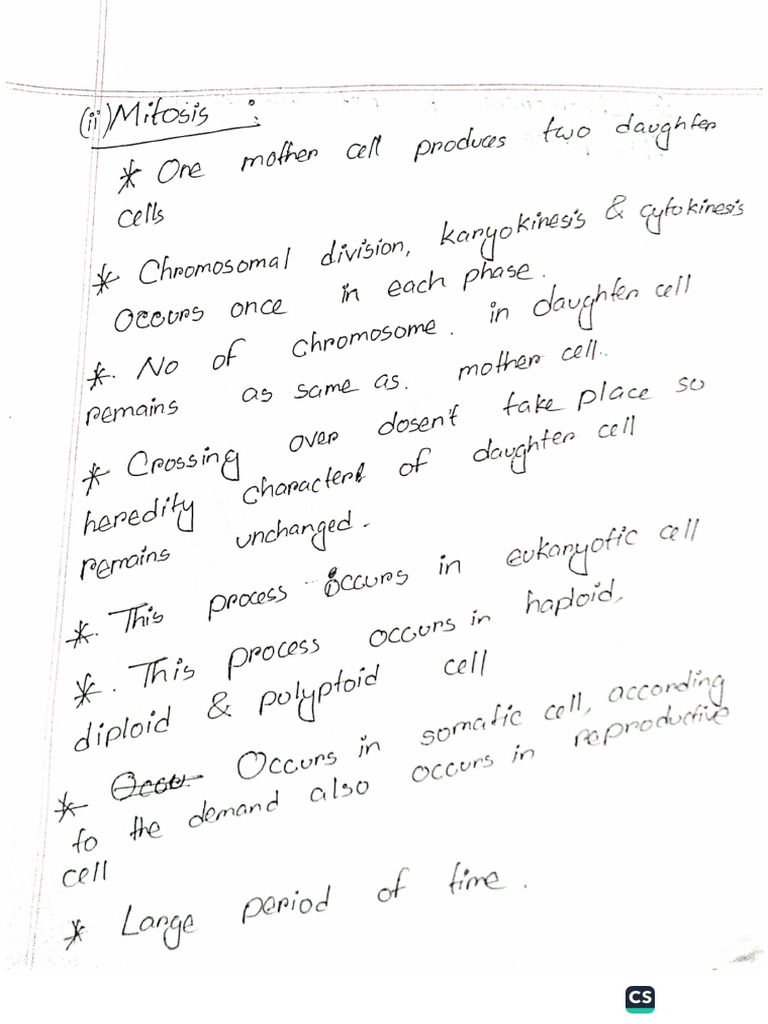 (ii) Mitosis :
* One mother cell produces two daughter
cells
* Chromosomal division, karyokinesis & cytokinesis
occurs once in each phase.
*. No of chromosome. in daughter cell
remains as same as. mother cell..
* Crossing over dosen't take place so
heredity character of daughter cell
remains unchanged.
*. This process occurs in eukaryotic cell
*. This process occurs in haploid,
diploid & polyptoid cell
* Occu Occurs in somatic cell, according
to the demand also occurs in reproductive
cell
* Large period of time.
CS